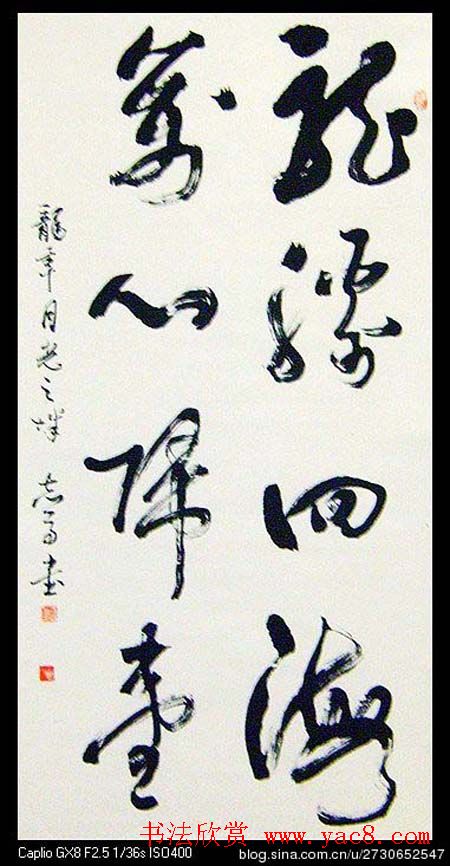 龍騰四海
萬心歸
龍年月光之城 志 書
书法欣赏 www.yac8.com
Caplio GX8 F2.5 1/36s ISO400
blog.sina.com.cn/u/2730652547